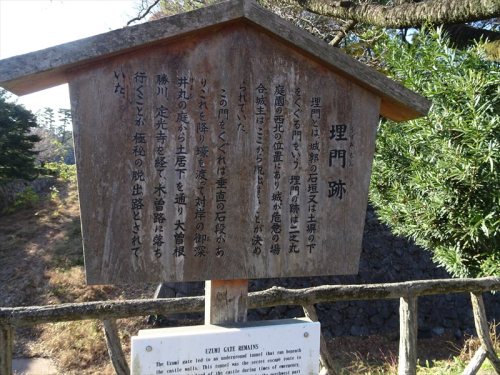 埋門跡
埋門とは、城郭の石垣又は土塀の下
をくぐる門をいう。埋門の跡は二之丸
庭園の西北の位置にあり城が危急の場
合城主はここから脱出することが決め
られていた。
この門をくぐれば垂直の石段があ
りこれを降り濠を渡って対岸の御深
井丸の庭から土居下を通り大曽根
勝川、定光寺を経て、木曽路に落ち
行くことが極秘の脱出路とされて
いた。
UZUMI GATE REMAINS
The Uzumi gate led to an underground tunnel that ran beneath
the castle walls. This was the secret escape route to
of the castle during times of emergency.